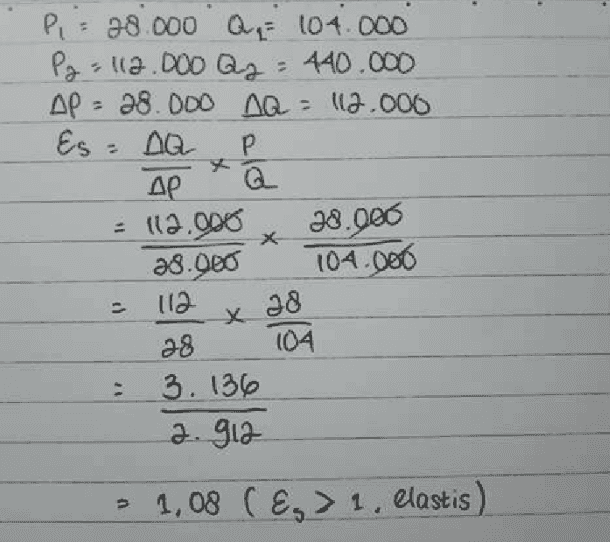 P₁ = 28.000 Q₁= 104.000
P₂ = 112.000 Q₂ = 440.000
ΔP = 28.000 ΔQ = 112.000
Es = ΔQ/ΔP × P/Q
= 112.000/28.000 × 28.000/104.000
= 112/28 × 28/104
= 3.136/2.912
= 1,08 ( Es > 1, elastis )